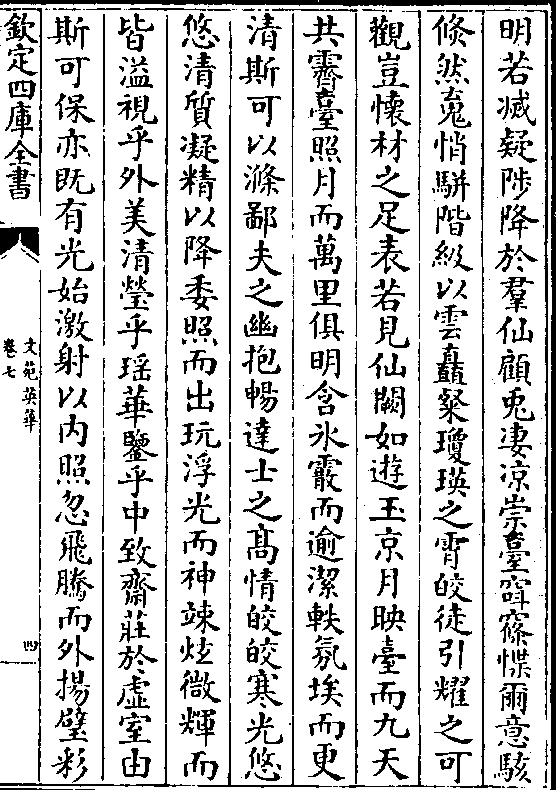 明若滅疑陟降於羣仙顧兎凄凉崇臺窅窱惵爾意駭
倐然䰟悄駢階級以雲矗粲瓊瑛之霄皎徒引耀之可
觀豈懐材之足表若見仙闕如遊玉京月映臺而九天
共霽臺照月而萬里俱明含氷霰而逾潔軼氛埃而更
清斯可以滌鄙夫之幽抱暢達士之髙情皎皎寒光悠
悠清質凝精以降委照而出玩浮光而神竦炫微輝而
皆溢視乎外美清瑩乎瑶華鑒乎中致齋莊於虚室由
斯可保亦既有光始激射以内照忽飛騰而外揚璧彩
欽定四庫全書
文苑英華
卷七
四